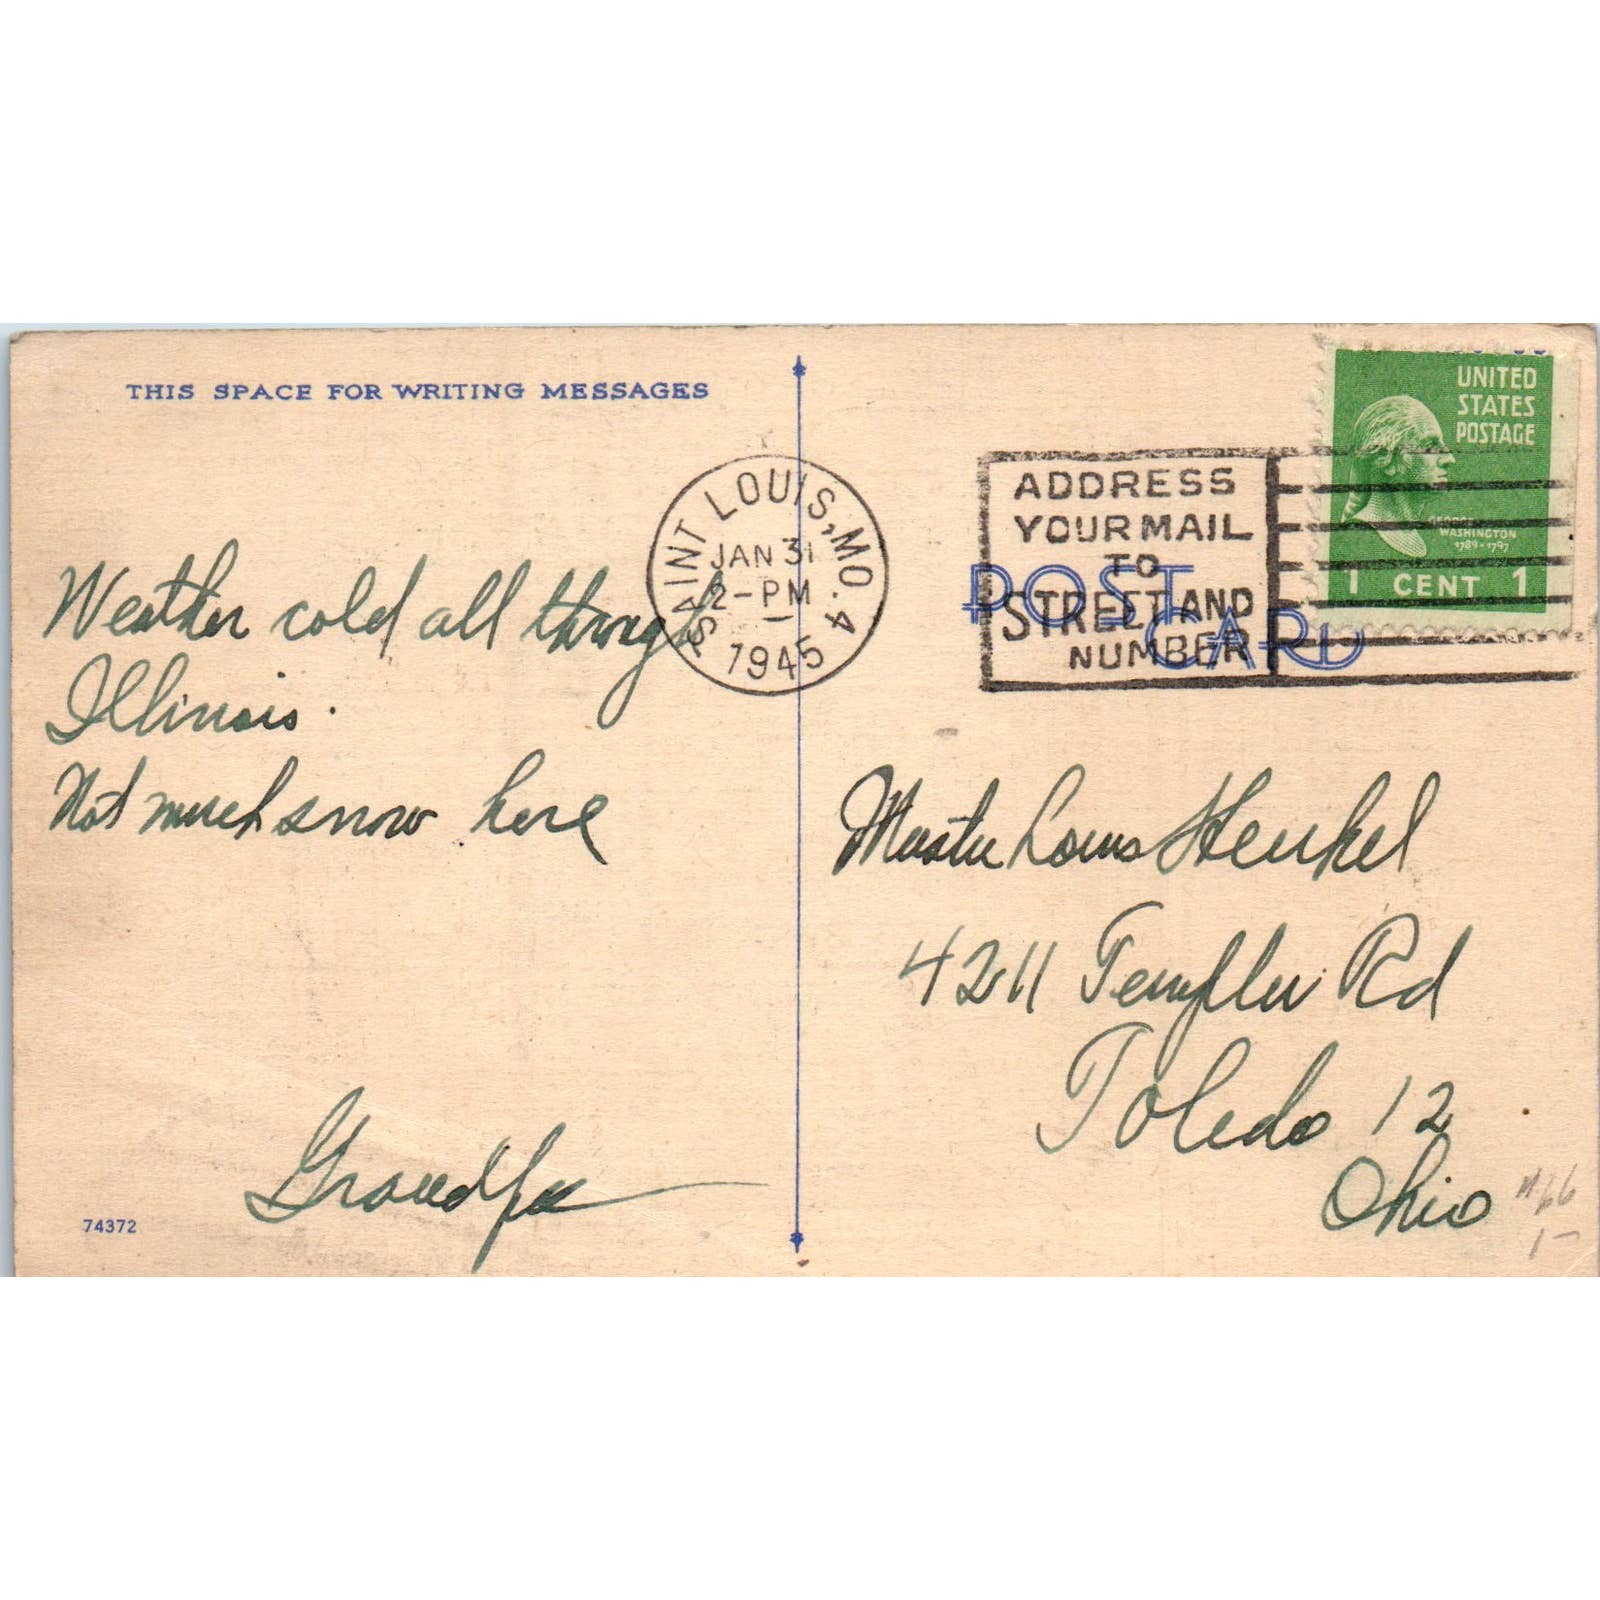 THIS SPACE FOR WRITING MESSAGES
Weather cold all through
Illinois.
Not much snow here
Grandpa
74372
SAINT LOUIS, MO. 4
JAN 31
2-PM
1945
ADDRESS
YOUR MAIL
TO
STREET AND
NUMBER
POST
CARD
UNITED
STATES
POSTAGE
GEORGE
WASHINGTON
1789-1797
1 CENT 1
Master Louis Henkel
4211 Templar Rd
Toledo 12
Ohio